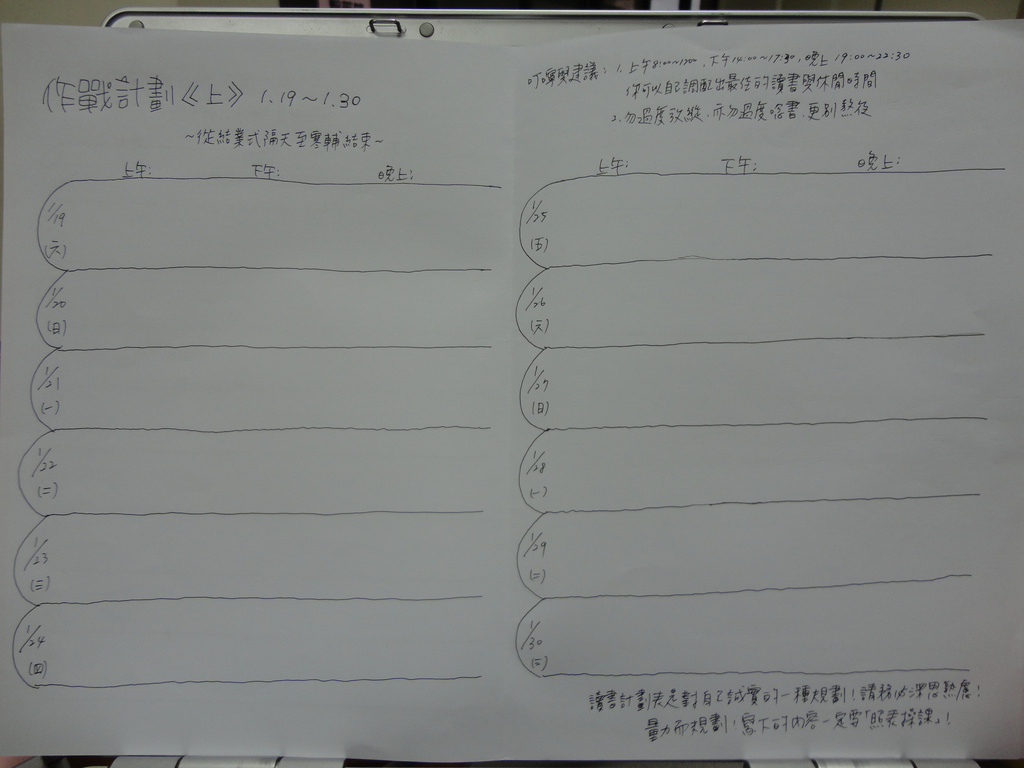 作戰計劃《上》 1.19～1.30
～從結業式隔天至寒輔結束～
上午: 下午: 晚上:
1/19
(六)
1/20
(日)
1/21
(一)
1/22
(二)
1/23
(三)
1/24
(四)
叮嚀與建議: 1. 上午8:00~12:00, 下午14:00~17:30, 晚上 19:00~22:30
你可以自己調配出最佳的讀書與休閒時間
2. 勿過度放縱、亦勿過度唸書、更別熬夜
上午: 下午: 晚上:
1/25
(五)
1/26
(六)
1/27
(日)
1/28
(一)
1/29
(二)
1/30
(三)
讀書計劃表是對自己誠實的一種規劃！請務必深思熟慮！
量力而規劃！寫下的內容一定要「照表操課」！